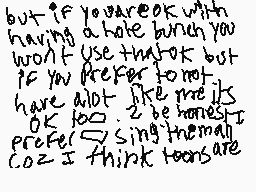 but if you are ok with
having a hole bunch you
wont use that ok but
if you prefer to not
have alot like me its
ok too. 2 be honest I
prefer using them all
coz I think toons are